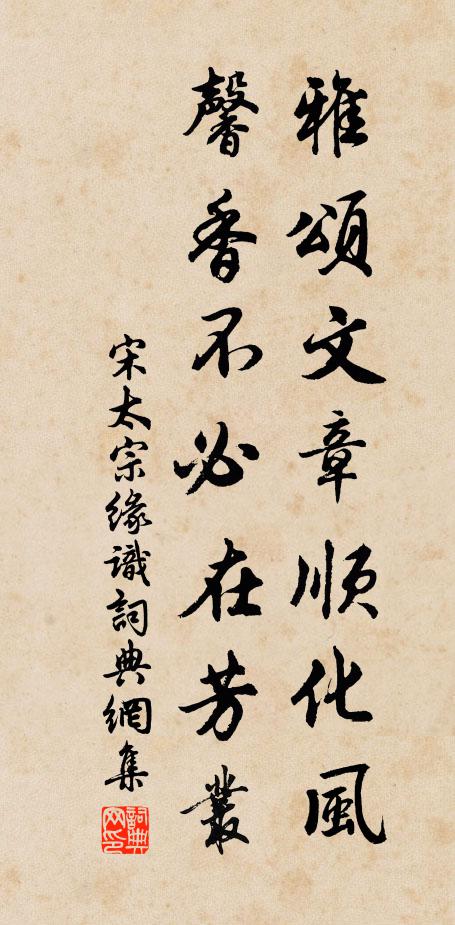 雅頌文章順化風
馨香不必在芳叢
宋太宗緣識詞典網集
詞典
网印